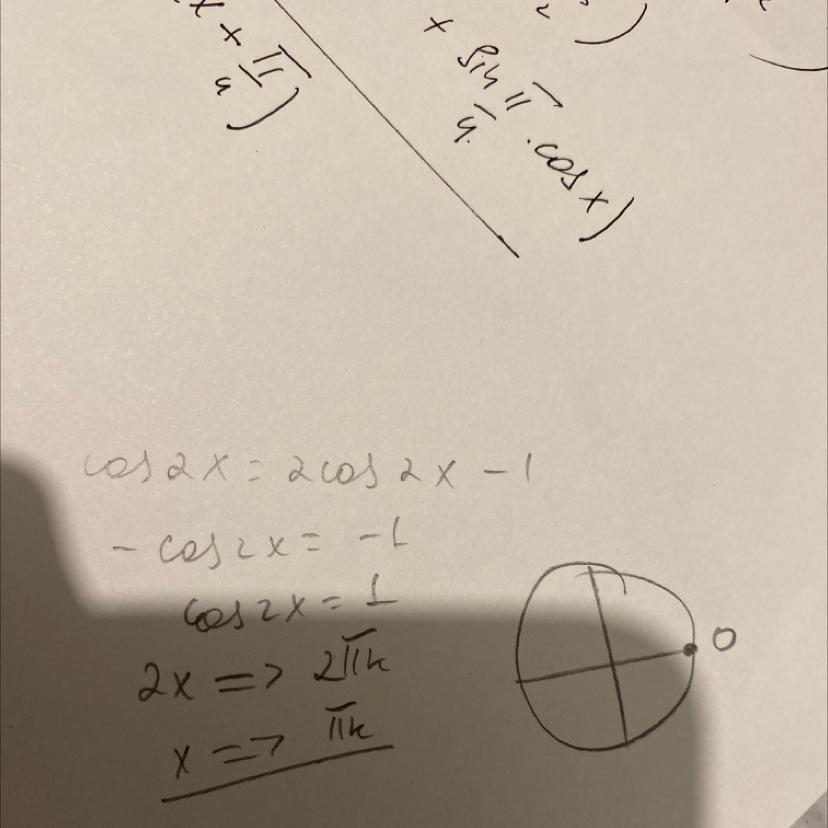 x + π/4)
+ sin π/4 · cos x)
cos 2x = 2cos 2x - 1
- cos 2x = -1
cos 2x = 1
2x => 2πk
x => πk
0